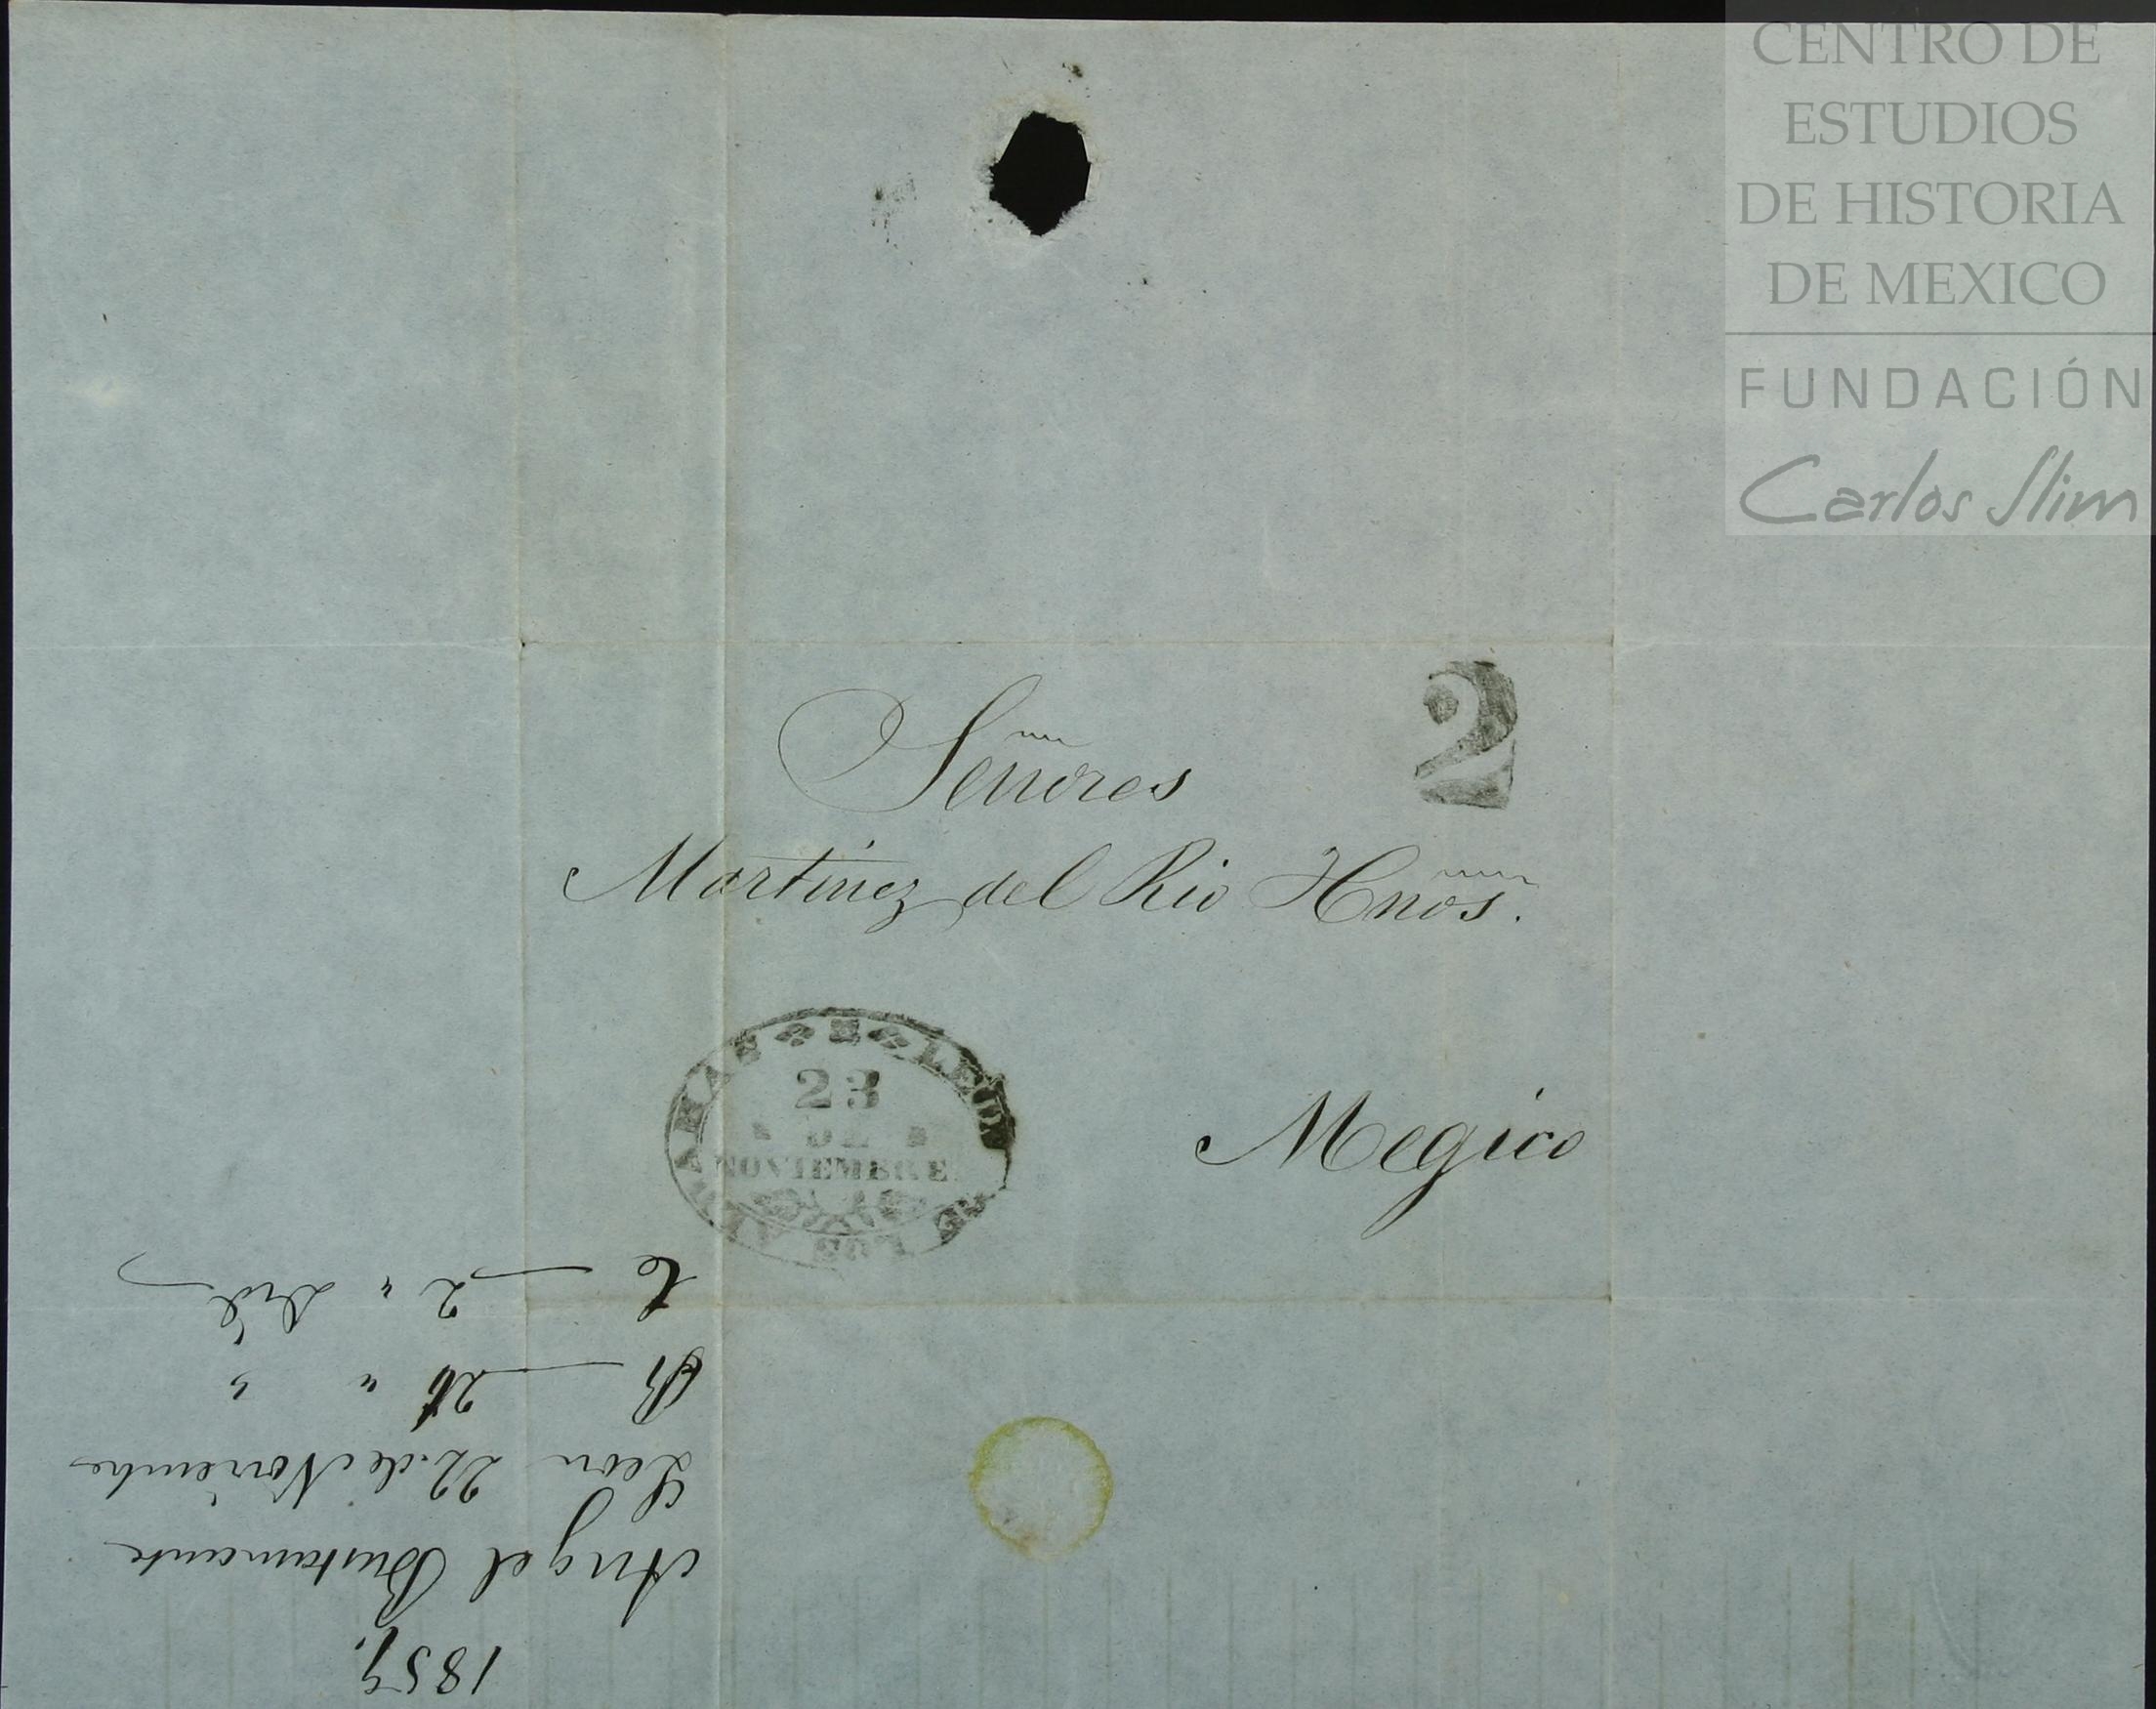 CENTRO DE
ESTUDIOS
DE HISTORIA
DE MEXICO
FUNDACIÓN
Carlos Slim
2
Señores
Martinez del Rio Hños.
Megico
LEON DE LOS ALDAMAS
23
DE
NOVIEMBRE
Angel Bustamante
Leon 22. de Noviembre
R — 26 " "
C — 2 "